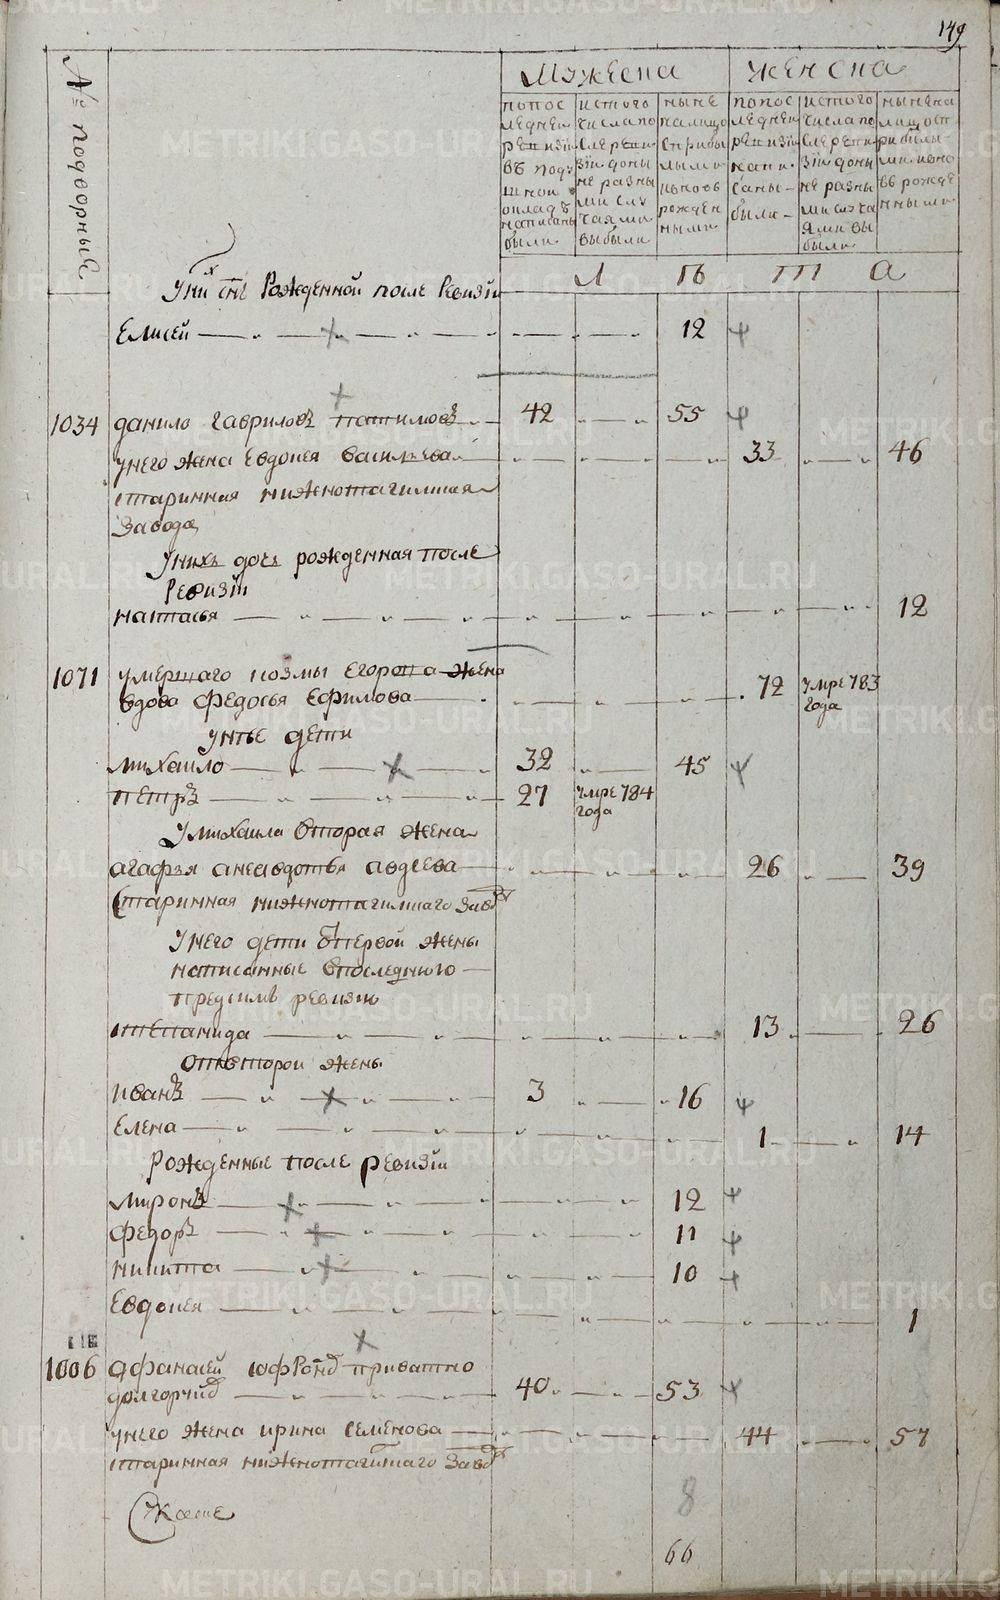 149
№ подворный
Мужеска
Женска
попос
ледней
ревизiи
въ поду
шной
окладъ
написаны
были
истого
числа по
сле реви
зiи доны
не разны
ми слу
чаями
выбыли
ныне
налицо
сприбы
лыми
ивновь
рожден
ными
попос
ледней
ревизiи
напи
саны
были
истого
числа по
сле реви
зiи доны
не разны
ми случа
ями вы
были
ныне на
лицо ст
рибылы
ми ивно
вь рожде
нными
Л Ѣ Т А
Уних снъ Рожденной после Ревизiи
Елисей 12
1034 данило Гавриловъ 42 55
Унего жена Евдокея Васильева 33 46
старинная нижнотагилская
завода
Унихъ дочь рожденная после
Ревизiи
настасья 12
1071 умершаго козмы Егорова жена
вдова Федосья Ефимова 72 умре 783
года
Унее дети
михаило 32 45
петръ 27 умре 784
года
Умихаила вторая жена
агафья Авдеева 26 39
старинная нижнотагилскаго завод
Унего дети отпервой жены
написанные впоследнюю
предсимъ ревизiю
степанида 13 26
отвторой жены
Иванъ 3 16
Елена 1 14
Рожденные после ревизiи
миронъ 12
федоръ 11
никита 10
Евдокея 1
1006 Афанасей
40 53
унего жена ирина Семенова 44 57
старинная нижнотагилскаго завод
8
66
METRIKI.GASO-URAL.RU